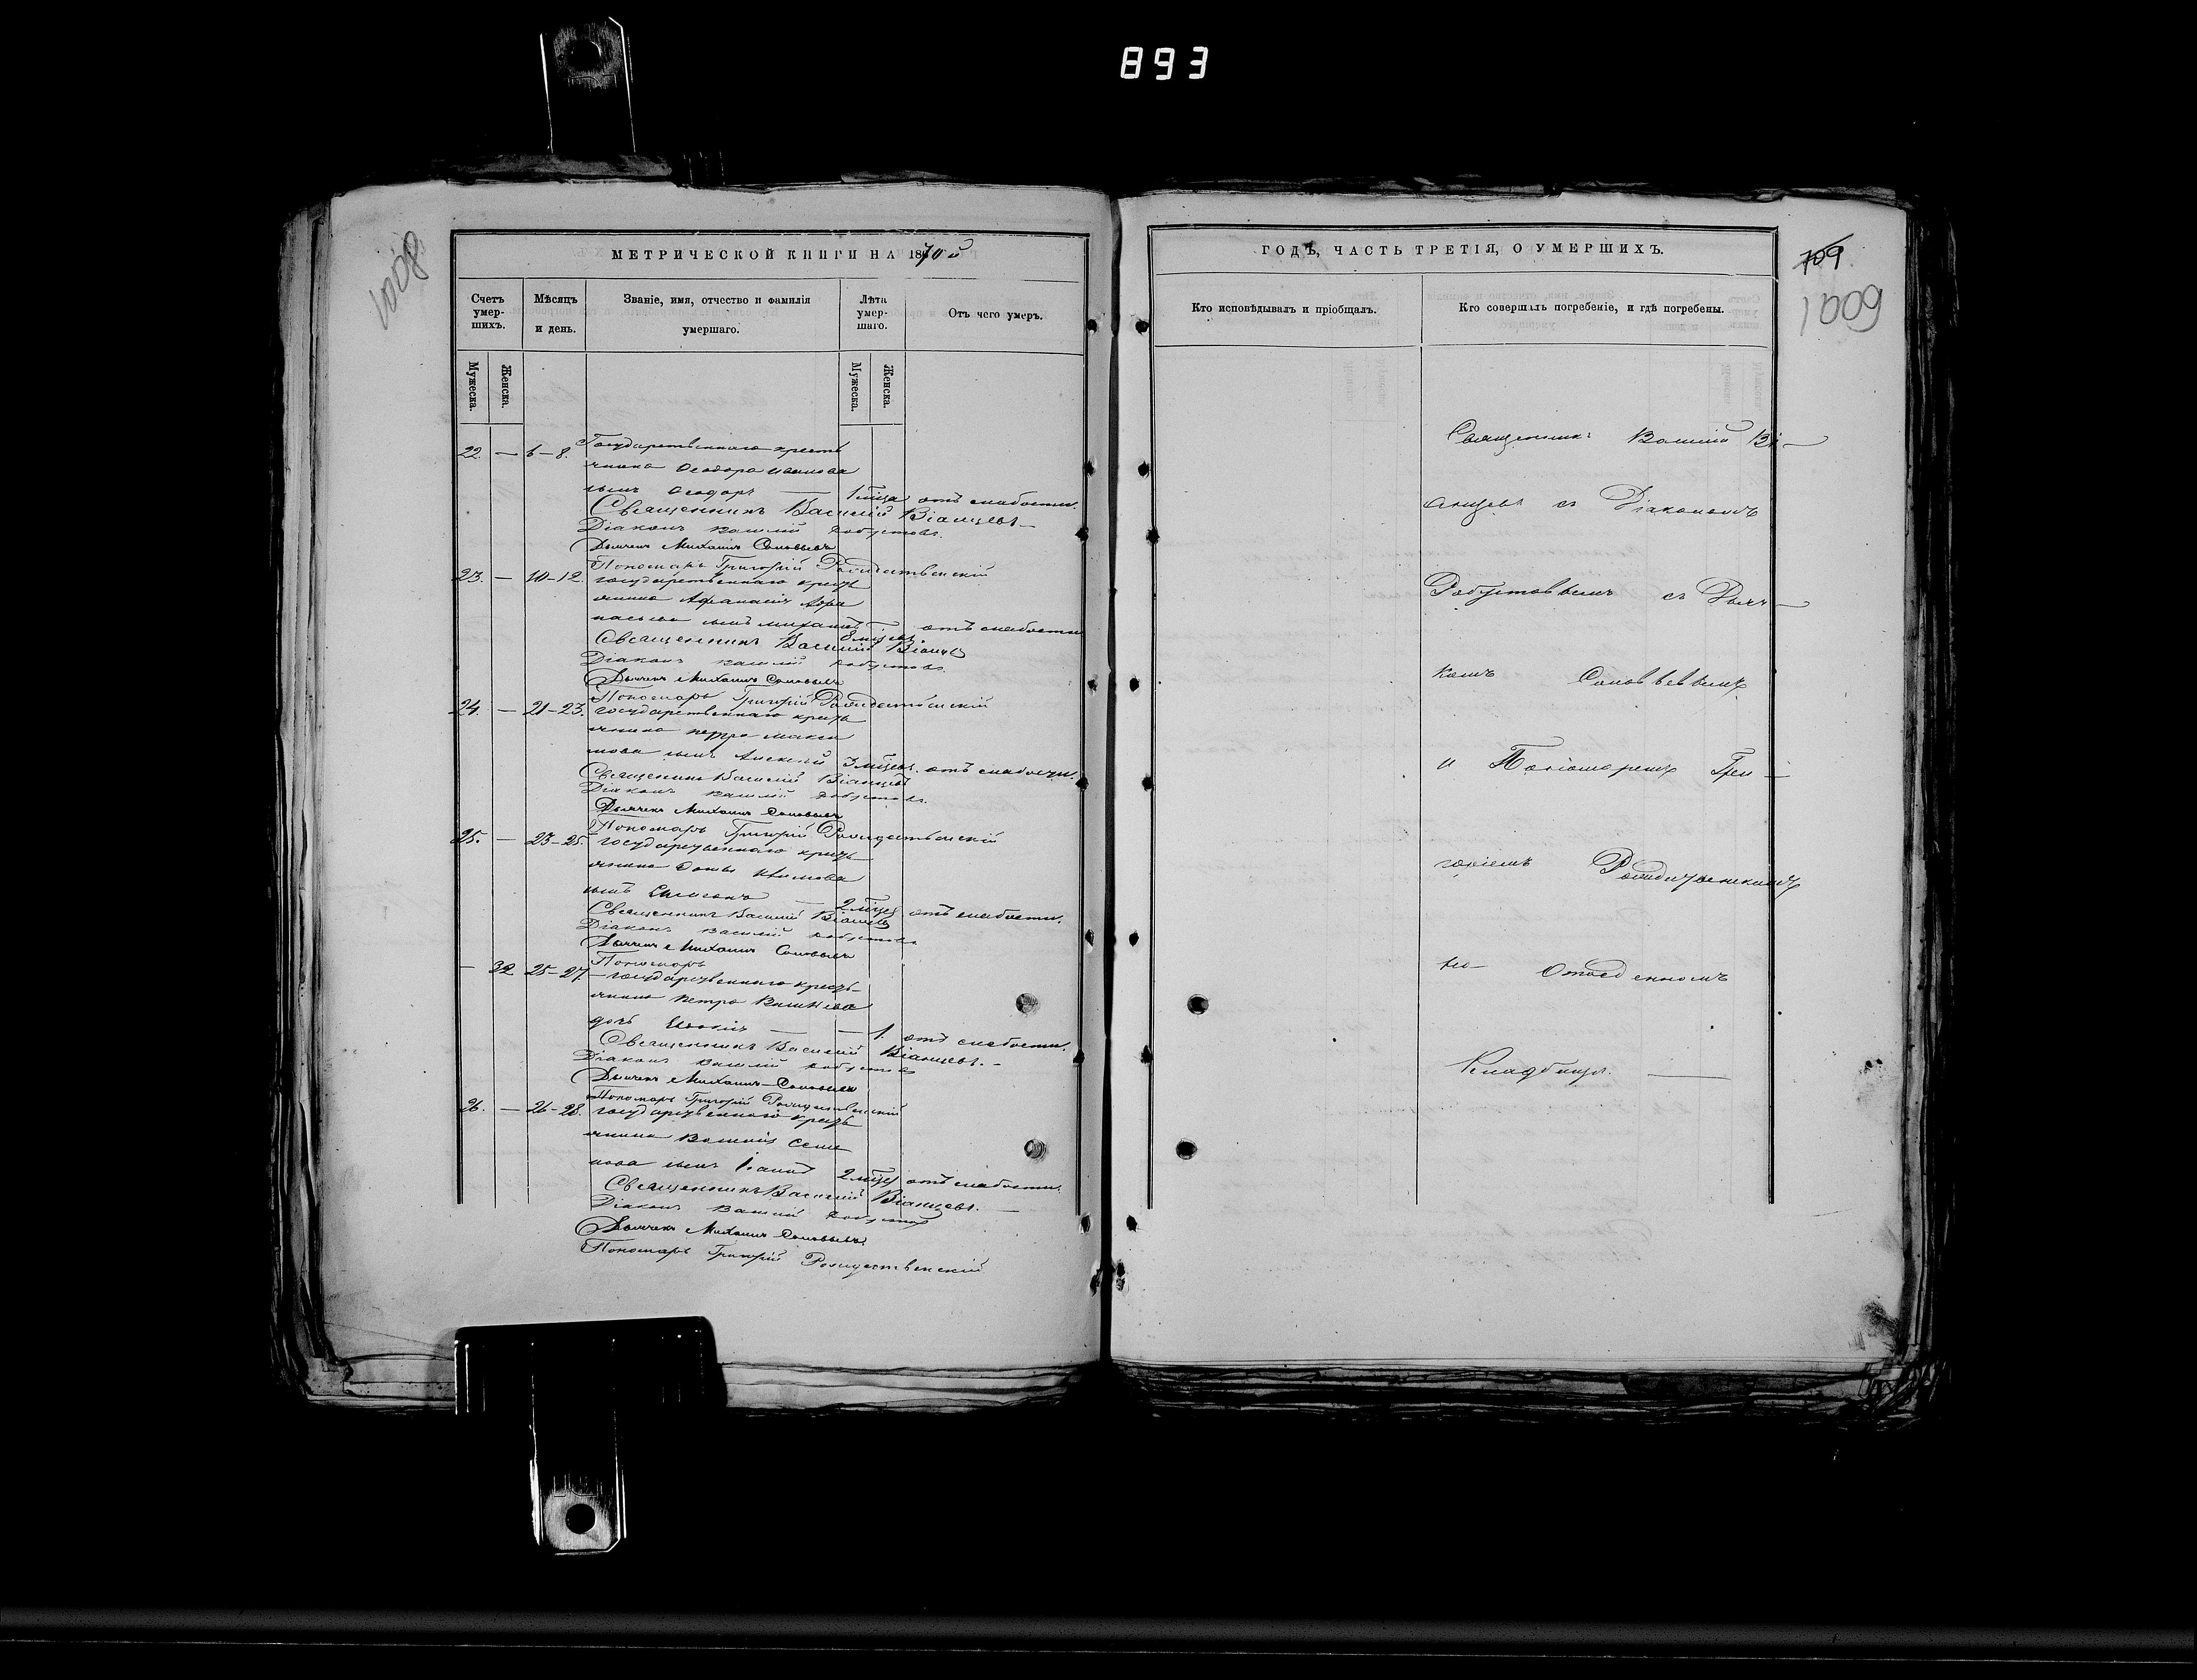 893
1008
МЕТРИЧЕСКОЙ КНИГИ НА 1870й
Счетъ умерших. Мѣсяцъ и день. Званіе, имя, отчество и фамилія умершаго. Лѣта умершаго. Отъ чего умеръ.
Мужеска. Женска. Мужеска. Женска.
22. — 6–8. Государственнаго кресть
янина Ѳеодора Иванова
сынъ Ѳеодоръ — 1 мѣца отъ слабости.
Священникъ Василій Віанцевъ
Діаконъ Василій Добустовъ.
Дьячекъ Михаилъ Соловьевъ
Пономарь Григорій Рождественскій
23. — 10–12. государственнаго кресть
янина Афанасія
сынъ — 8 мѣцевъ отъ слабости
Священникъ Василій Віанцевъ
Діаконъ Василій
Дьячекъ Михаилъ Соловьевъ
Пономарь Григорій Рождественскій
24. — 21–23. государственнаго кресть
янина Петра Макси
мова сынъ Алексей 3 мѣцевъ. отъ слабости.
Священникъ Василій Віанцевъ
Діаконъ Василій
Дьячекъ Михаилъ Соловьевъ
Пономарь Григорій Рождественскій
25. — 23–25. государственнаго кресть
янина
сынъ — 2 мѣцев отъ слабости.
Священникъ Василій Віанцевъ
Діаконъ Василій
Дьячекъ Михаилъ Соловьевъ
Пономарь
— 32 25–27 государственнаго кресть
янина Петра
дочь — — 1. отъ слабости.
Священникъ Василій Віанцевъ. –
Діаконъ Василій
Дьячекъ Михаилъ Соловьевъ
Пономарь Григорій Рождественскій
26. — 26–28. государственнаго кресть
янина Василія Семе
нова сынъ 2 мѣцев отъ слабости.
Священникъ Василій Віанцевъ. —
Діаконъ Василій
Дьячекъ Михаилъ Соловьевъ.
Пономарь Григорій Рождественскій
ГОДЪ, ЧАСТЬ ТРЕТІЯ, О УМЕРШИХЪ.
709
1009
Кто исповѣдывалъ и пріобщалъ. Кто совершалъ погребеніе, и гдѣ погребены.
Священникъ Василій Ві—
анцевъ съ Діакономъ
съ Дьяч—
комъ Соловьевымъ
и Пономаремъ Гри—
горіемъ Рождественскимъ
на отведенномъ
Кладбищѣ. —